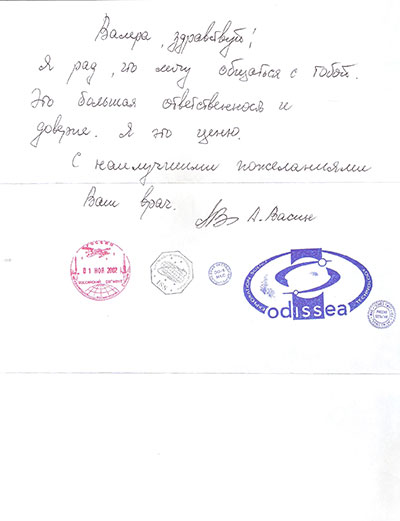 Валера, здравствуй!
Я рад, что могу общаться с тобой.
Это большая ответственность и
доверие. Я это ценю.
С наилучшими пожеланиями
Ваш врач. А. Васин
01 НОЯ 2002
ISS
odissea